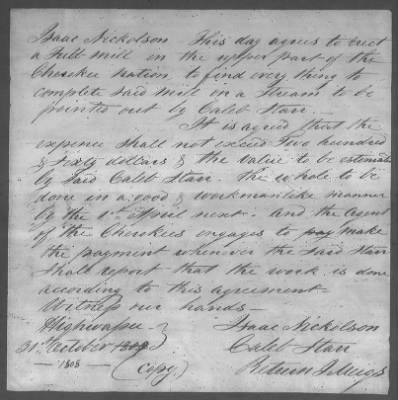 Isaac Nickolson This day agrees to erect
a full mill in the upper part of the
Cherokee Nation, to find every thing to
complete said mill in a stream to be
pointed out by Caleb Starr —
It is agreed that the
expence shall not exceed Two hundred
& Sixty dollars & the value to be estimated
by said Caleb Starr. The whole to be
done in a good & workmanlike manner
by the 1st April next. And the Agent
of the Cherokees engages to pay make
the payment whenever the said Starr
shall report that the work is done
according to this agreement —
Witness our hands —
Highwassee
31st October 1808 Isaac Nickolson
— 1808 — (Copy) Caleb Starr
Return J. Meigs